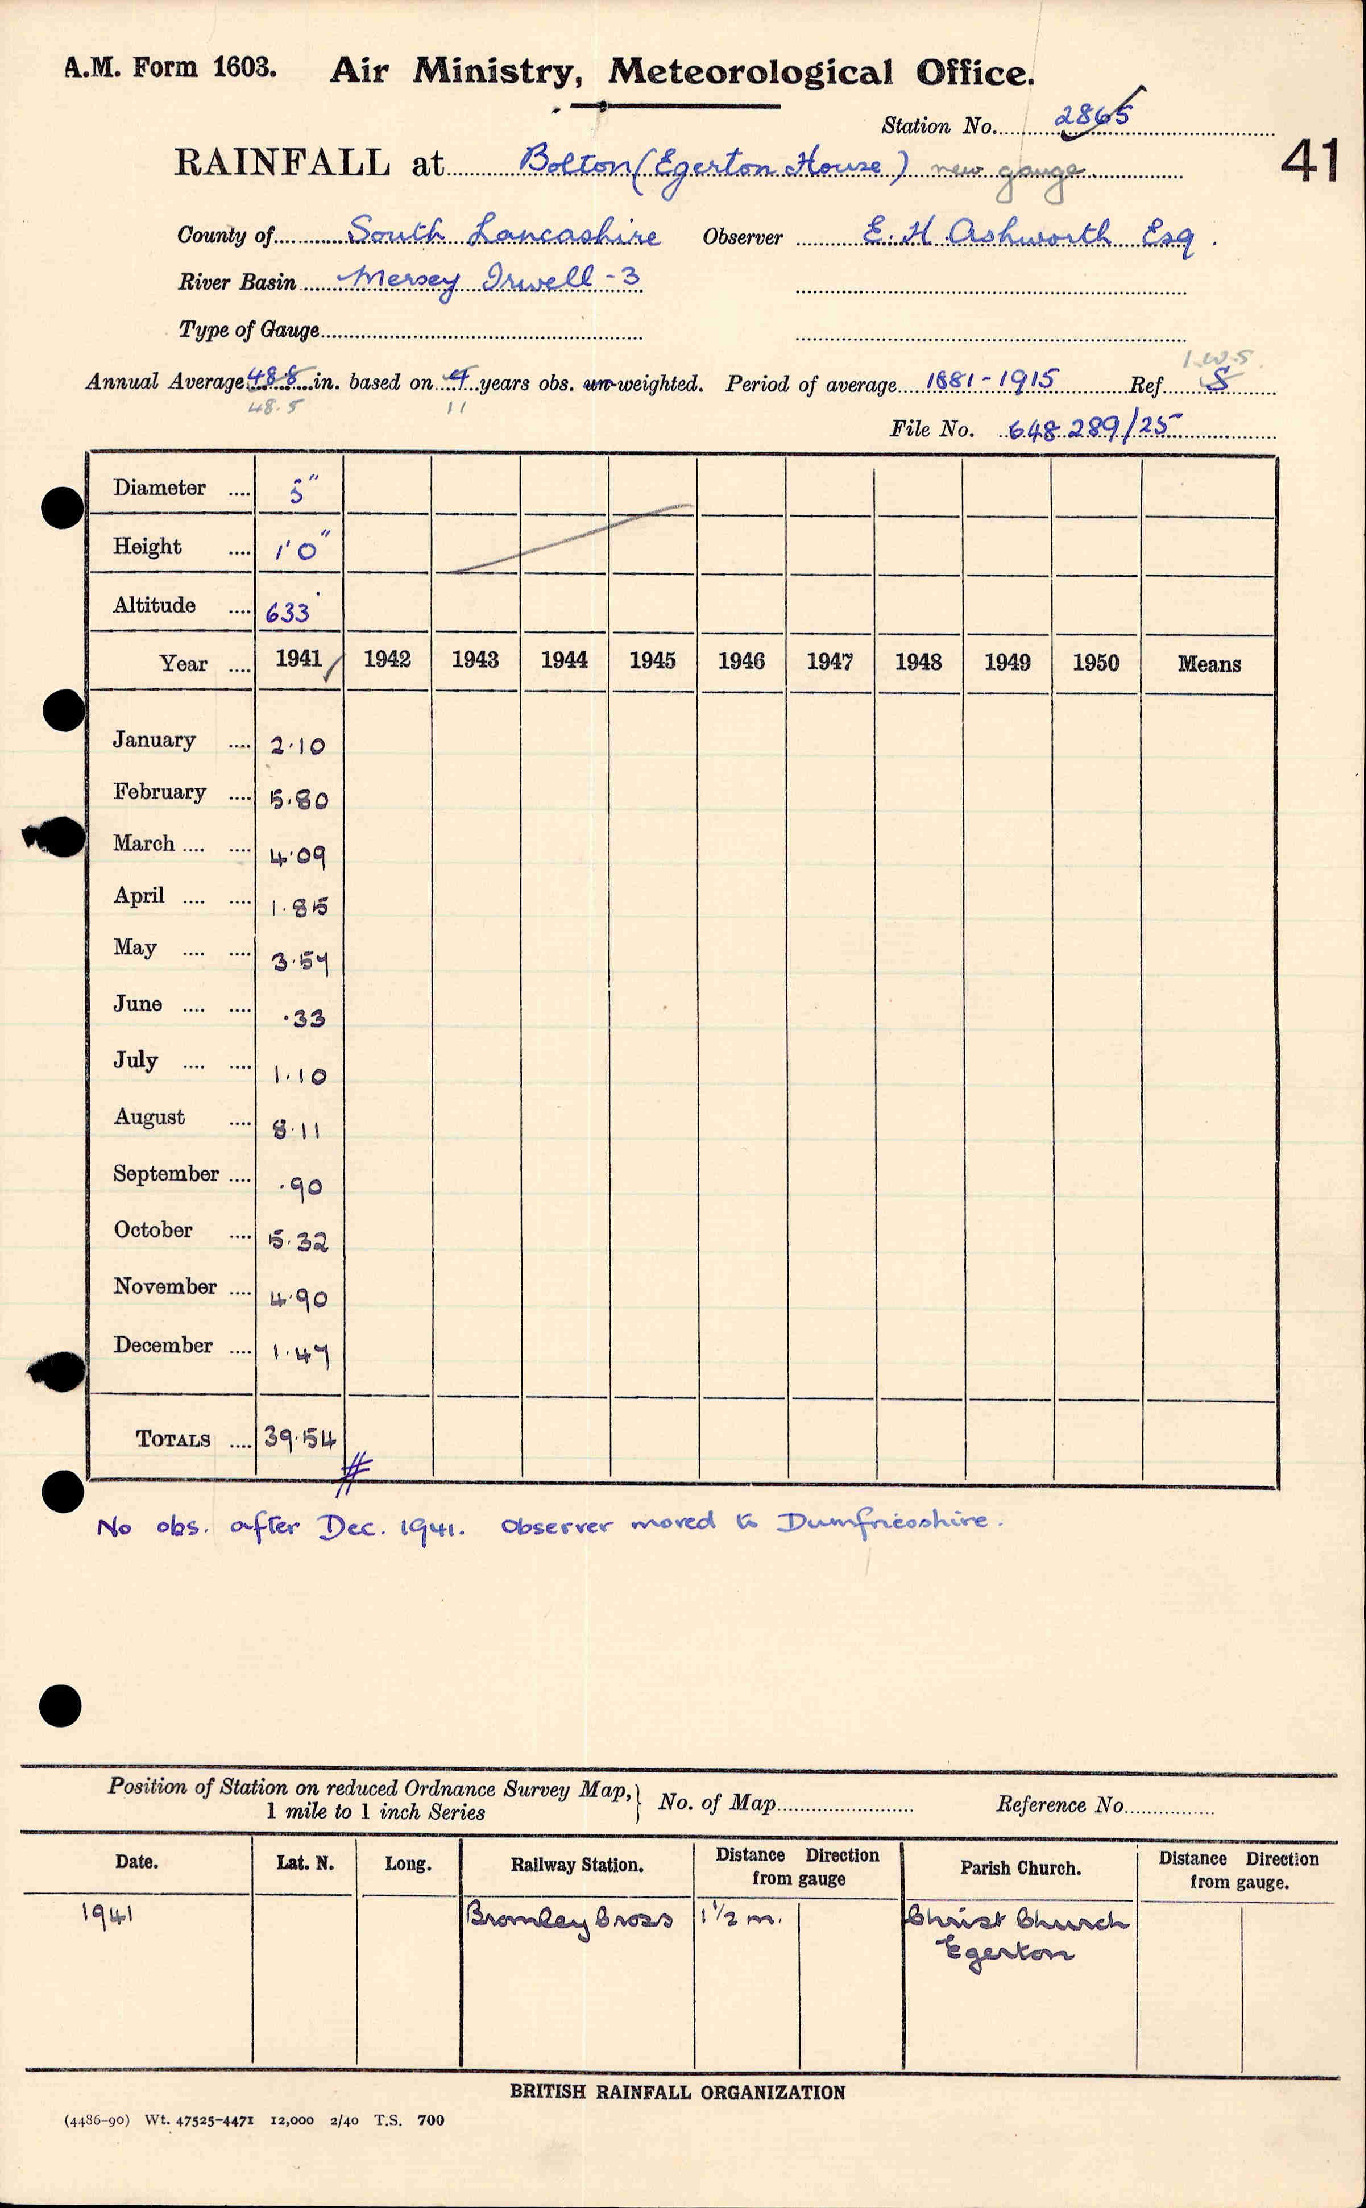 A.M. Form 1603. Air Ministry, Meteorological Office.
Station No. 2865
RAINFALL at Bolton (Egerton House) new gauge. 41
County of South Lancashire Observer E. H Ashworth Esq.
River Basin Mersey Irwell - 3
Type of Gauge
1.W.S.
Annual Average 48.8 in. based on 4 years obs. un-weighted. Period of average 1881-1915 Ref. S
48.5 11
File No. 648 289/25
Diameter .... 5"
Height .... 1'0"
Altitude .... 633'
Year .... 1941 1942 1943 1944 1945 1946 1947 1948 1949 1950 Means
January .... 2.10
February .... 5.80
March .... .... 4.09
April .... .... 1.85
May .... .... 3.57
June .... .... .33
July .... .... 1.10
August .... 8.11
September .... .90
October .... 5.32
November .... 4.90
December .... 1.47
TOTALS .... 39.54
#
No obs. after Dec. 1941. Observer moved to Dumfriesshire.
Position of Station on reduced Ordnance Survey Map,
1 mile to 1 inch Series } No. of Map Reference No.
Date. Lat. N. Long. Railway Station. Distance Direction from gauge Parish Church. Distance Direction from gauge.
1941 Bromley Cross 1 1/2 m. Christ Church
Egerton
BRITISH RAINFALL ORGANIZATION
(4486-90) Wt. 47525-4471 12,000 2/40 T.S. 700